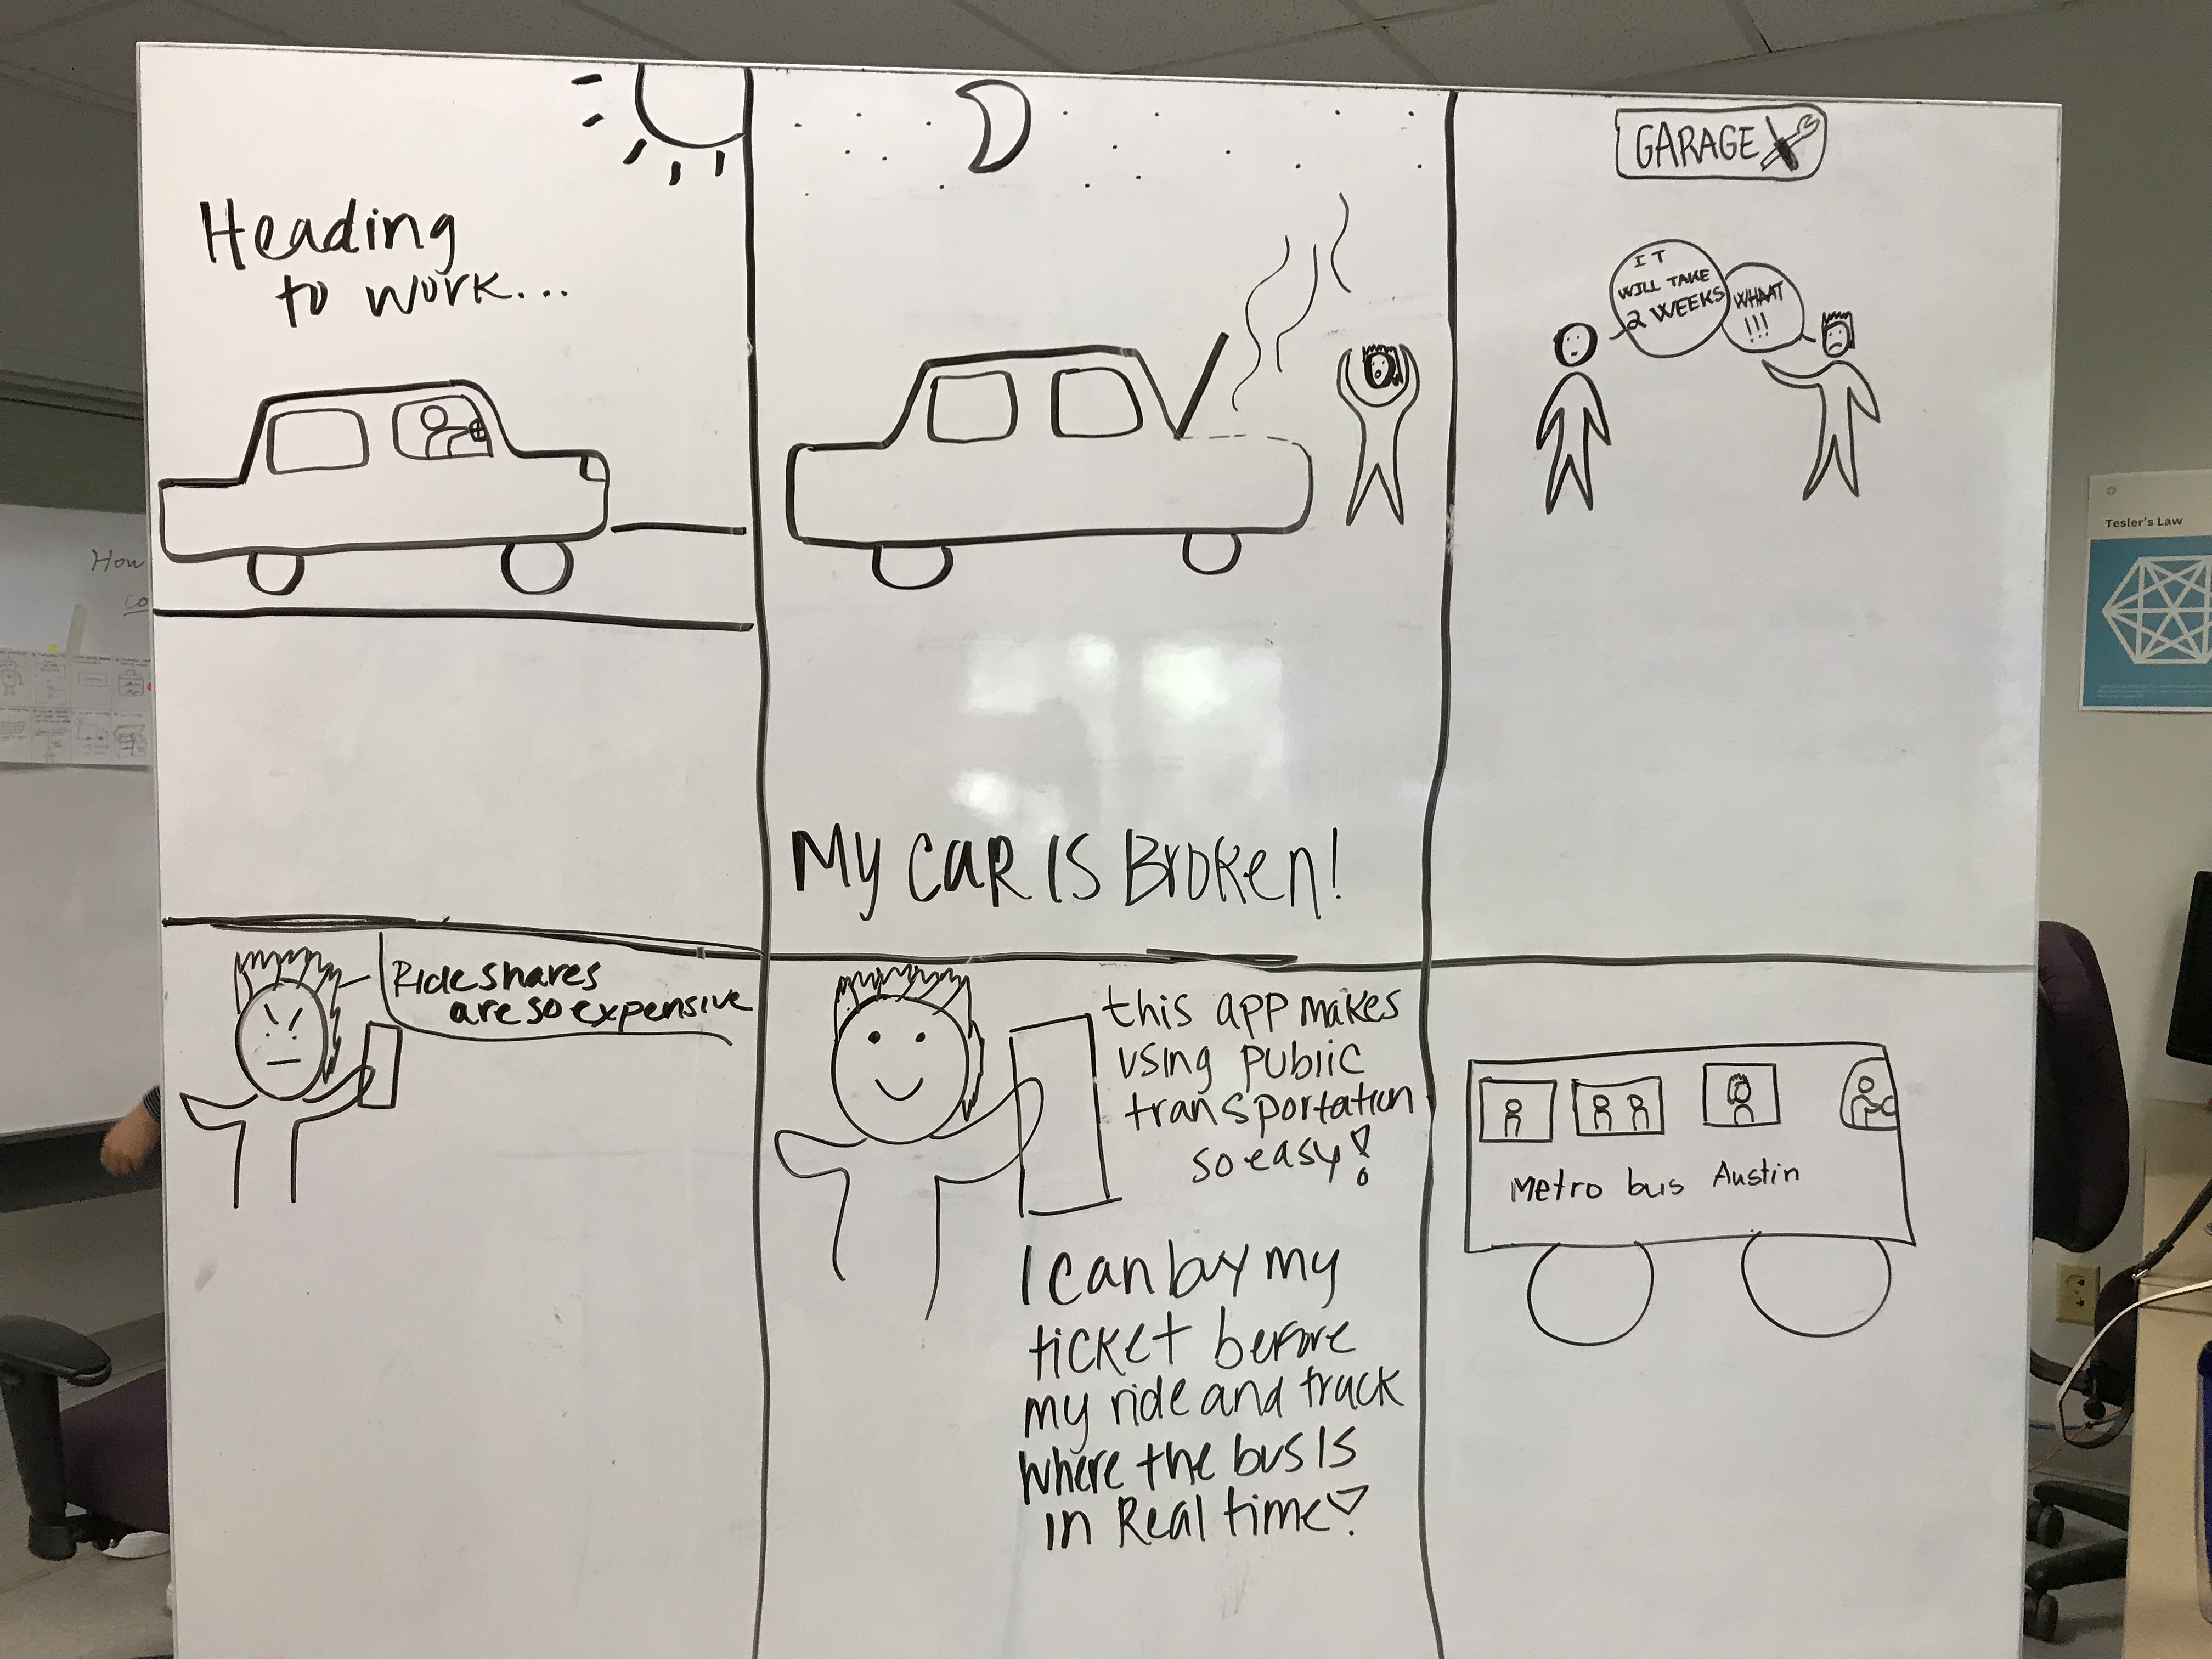 Heading
to work...
My CAR IS Broken!
GARAGE
IT
WILL TAKE
2 WEEKS
WHAAT
!!!
Rideshares
are so expensive
this app makes
using public
transportation
so easy!
I can buy my
ticket before
my ride and track
where the bus is
in Real time!
Metro bus Austin
Tesler's Law
How
co